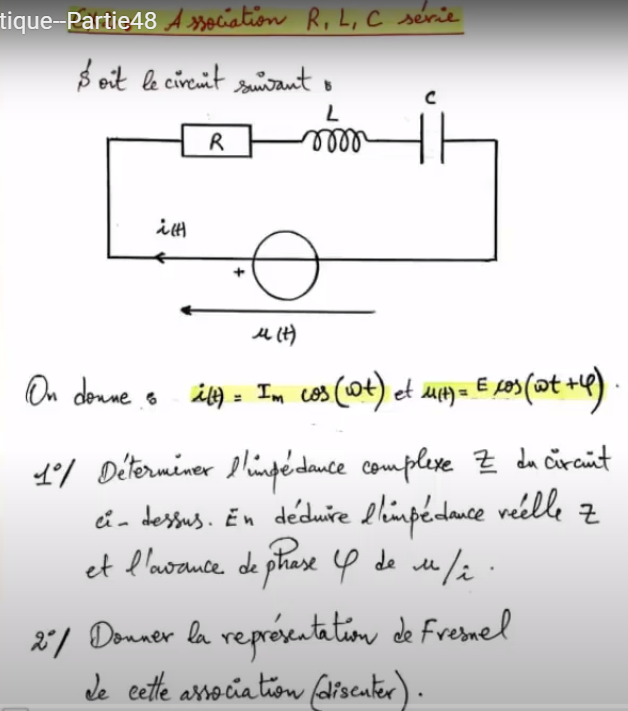 tique--Partie48
Association R, L, C série
Soit le circuit suivant :
L
C
R
i(t)
+
u(t)
On donne : i(t) = Im cos(ωt) et u(t) = E cos(ωt + φ).
1°/ Déterminer l'impédance complexe Z du circuit
ci-dessus. En déduire l'impédance réelle Z
et l'avance de phase φ de u/i.
2°/ Donner la représentation de Fresnel
de cette association (discuter).